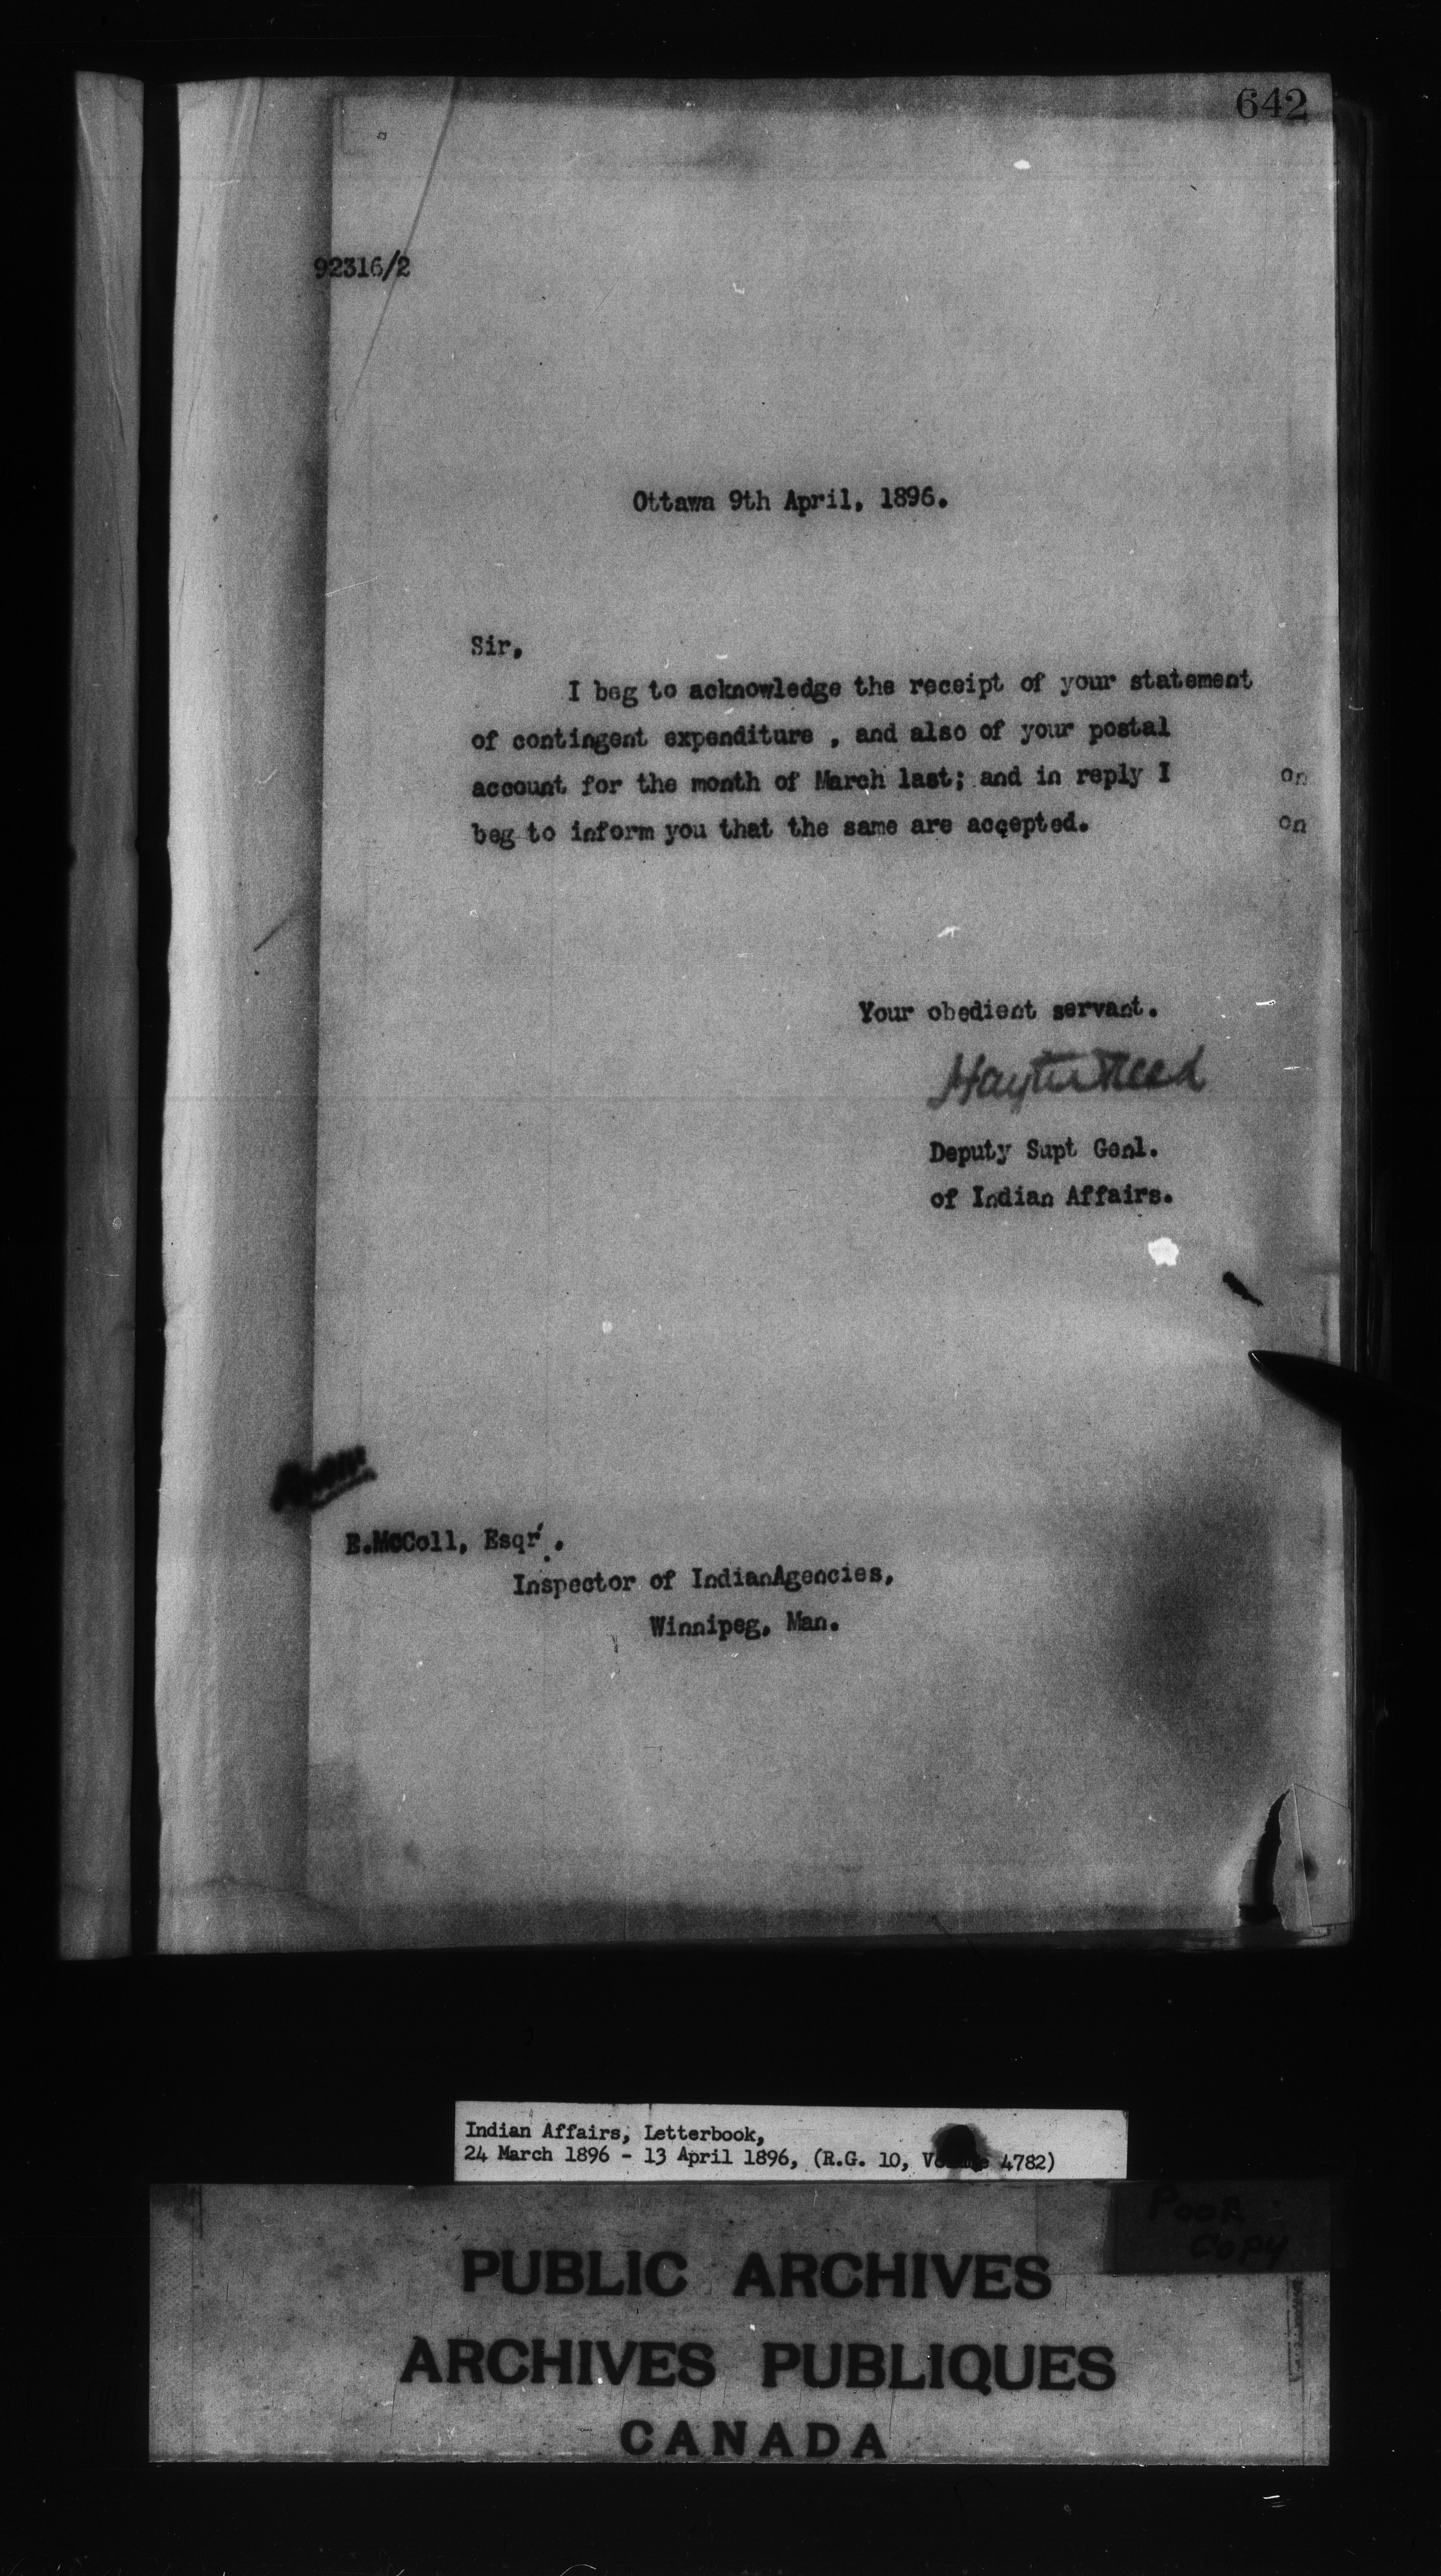 642
92316/2
Ottawa 9th April, 1896.
Sir,
I beg to acknowledge the receipt of your statement
of contingent expenditure , and also of your postal
account for the month of March last; and in reply I
beg to inform you that the same are accepted.
on
on
Your obedient servant.
Hayter Reed
Deputy Supt Genl.
of Indian Affairs.
E.McColl, Esqr.
Inspector of IndianAgencies,
Winnipeg, Man.
Indian Affairs, Letterbook,
24 March 1896 - 13 April 1896, (R.G. 10, Volume 4782)
POOR
COPY
PUBLIC ARCHIVES
ARCHIVES PUBLIQUES
CANADA